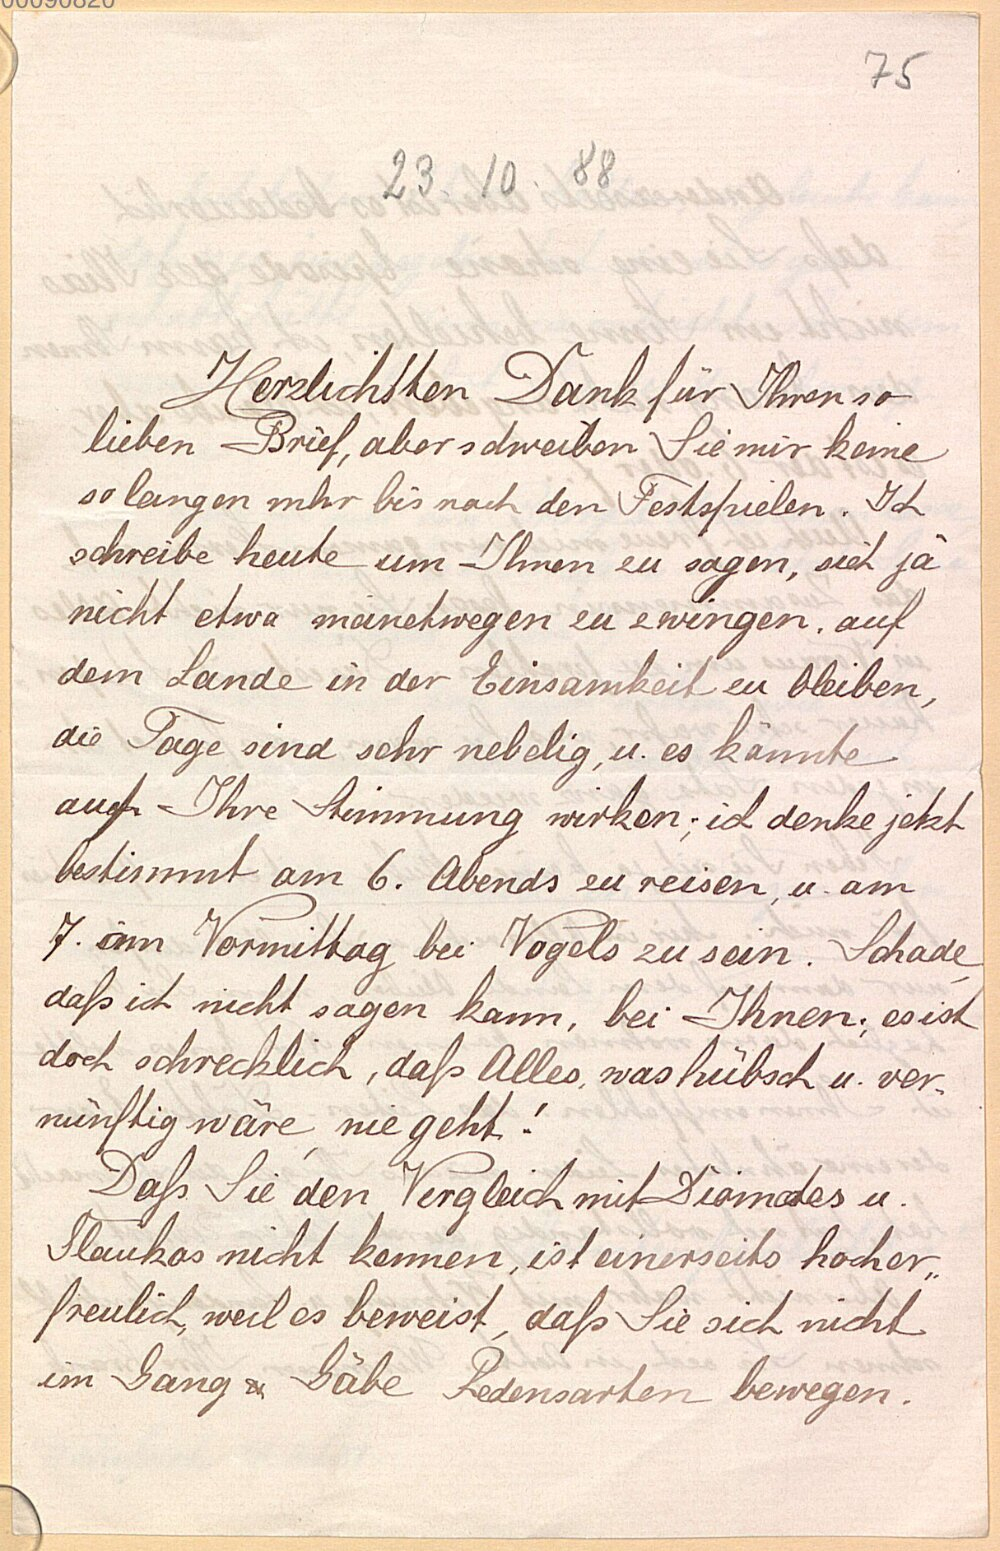 00090820
75
23. 10. 88
Herzlichsten Dank für Ihren so
lieben Brief, aber schreiben Sie mir keine
so langen mhr bis nach den Festspielen. Ich
schreibe heute um Ihnen zu sagen, sich ja
nicht etwa meinetwegen zu zwingen, auf
dem Lande in der Einsamkeit zu bleiben,
die Tage sind sehr nebelig, u. es könnte
auf Ihre Stimmung wirken; ich denke jetzt
bestimmt am 6. Abends zu reisen, u. am
7. im Vormittag bei Vogels zu sein. Schade,
daß ich nicht sagen kann, bei Ihnen; es ist
doch schrecklich, daß Alles, was hübsch u. ver-
nünftig wäre, nie geht!
Daß Sie den Vergleich mit Diomedes u.
Glaukos nicht kennen, ist einerseits hocher-
freulich, weil es beweist, daß Sie sich nicht
im Gang & Gäbe Redensarten bewegen.